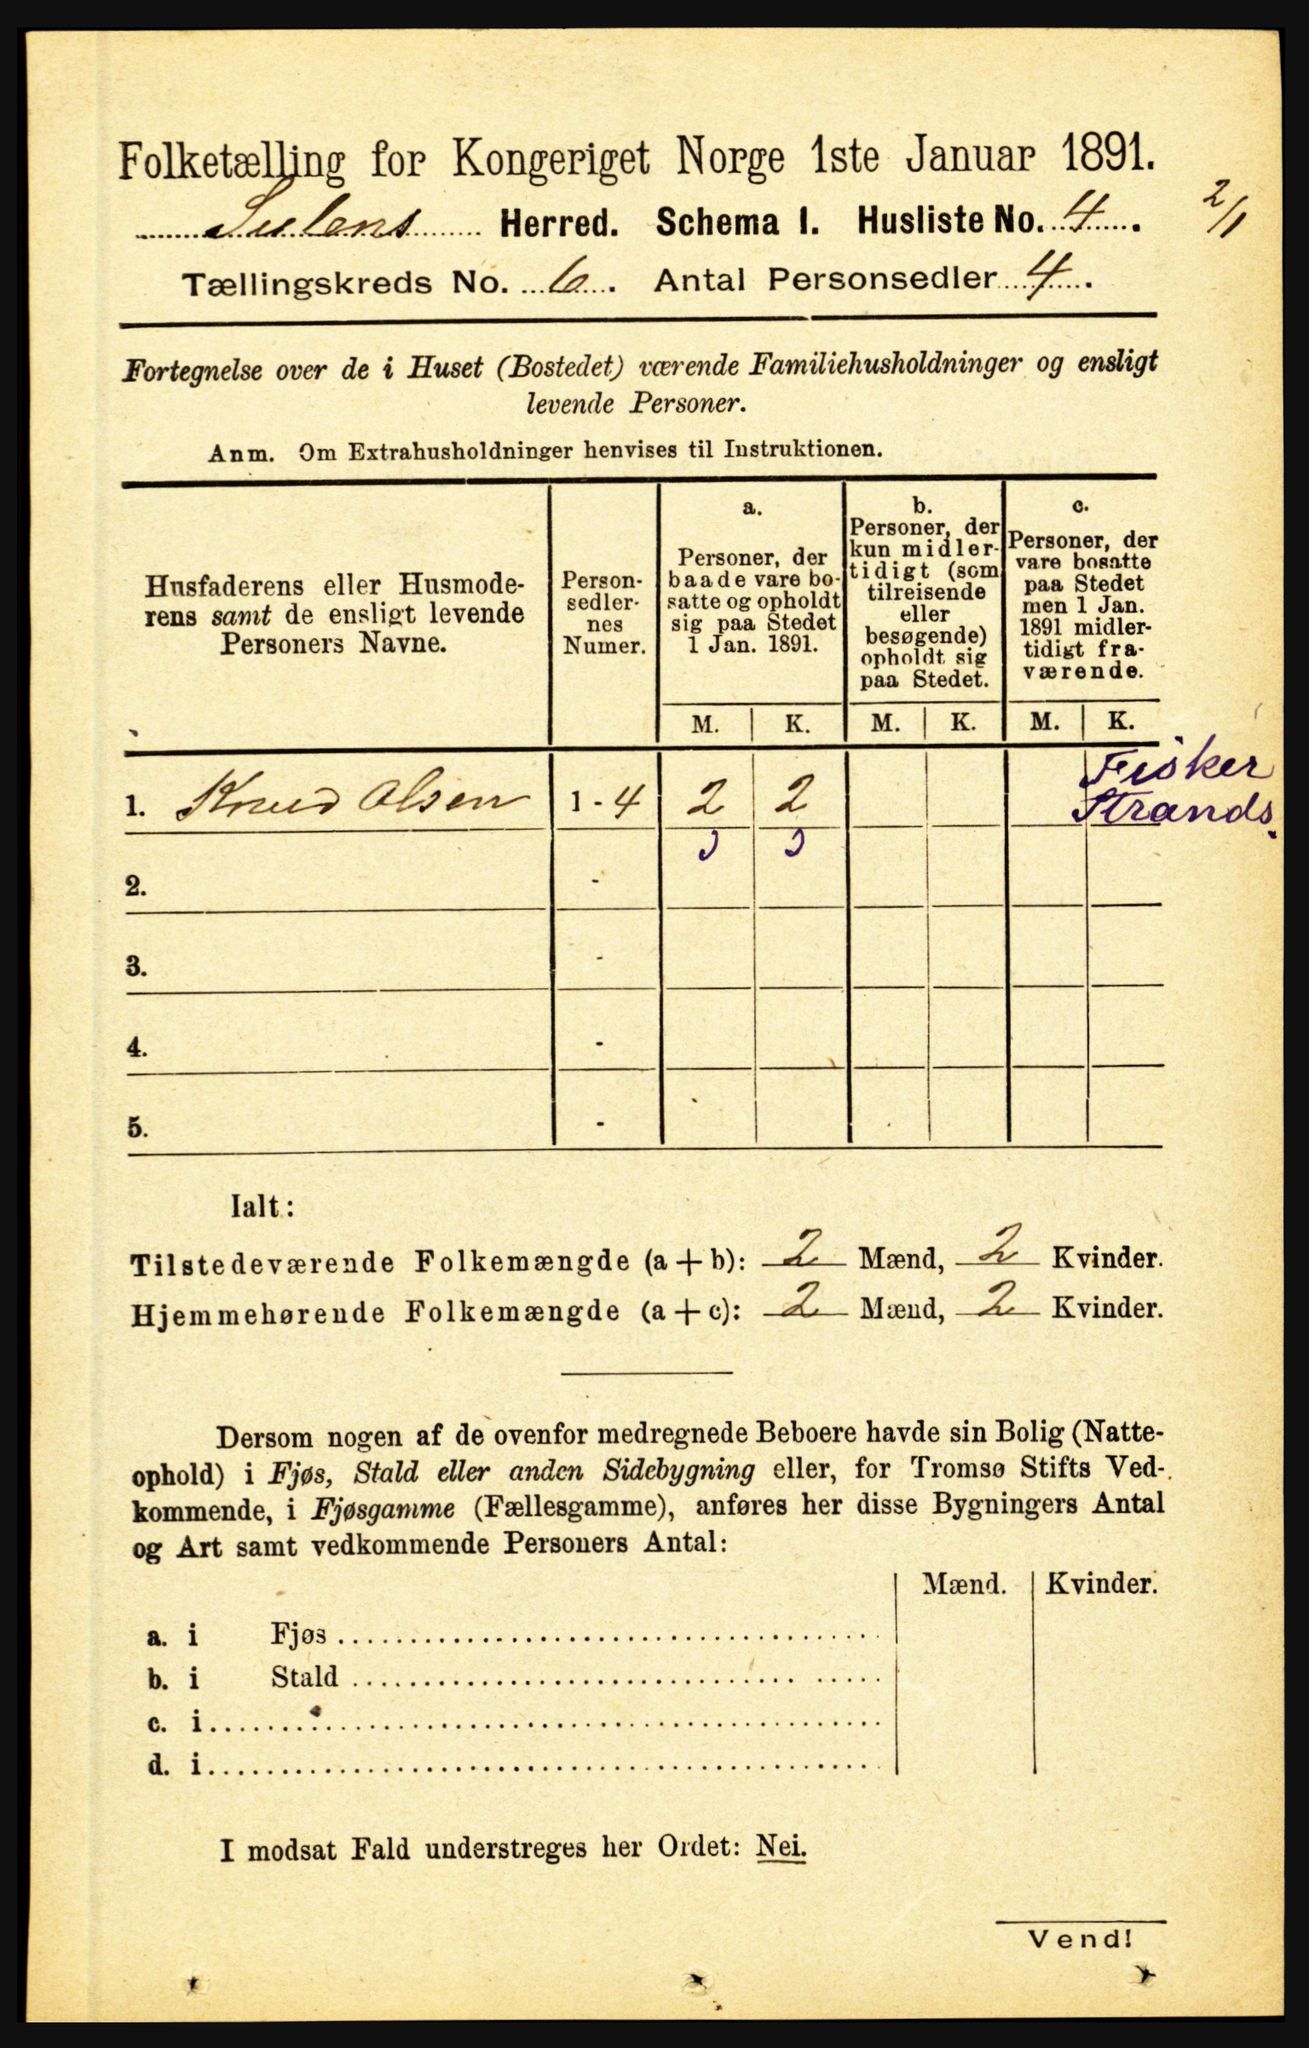 Folketælling for Kongeriget Norge 1ste Januar 1891.
Sulens Herred. Schema I. Husliste No. 4.
2/1
Tællingskreds No. 6. Antal Personsedler 4.
Fortegnelse over de i Huset (Bostedet) værende Familiehusholdninger og ensligt
levende Personer.
Anm. Om Extrahusholdninger henvises til Instruktionen.
Husfaderens eller Husmode-
rens samt de ensligt levende
Personers Navne.
Person-
sedler-
nes
Numer.
a.
Personer, der
baade vare bo-
satte og opholdt
sig paa Stedet
1 Jan. 1891.
b.
Personer, der
kun midler-
tidigt (som
tilreisende
eller
besøgende)
opholdt sig
paa Stedet.
c.
Personer, der
vare bosatte
paa Stedet
men 1 Jan.
1891 midler-
tidigt fra-
værende.
M. K. M. K. M. K.
Fisker
1. Knud Olsen 1 - 4 2 2 Strands.
2. -
3. -
4. -
5. -
Ialt:
Tilstedeværende Folkemængde (a + b): 2 Mænd, 2 Kvinder.
Hjemmehørende Folkemængde (a + c): 2 Mænd, 2 Kvinder.
Dersom nogen af de ovenfor medregnede Beboere havde sin Bolig (Natte-
ophold) i Fjøs, Stald eller anden Sidebygning eller, for Tromsø Stifts Ved-
kommende, i Fjøsgamme (Fællesgamme), anføres her disse Bygningers Antal
og Art samt vedkommende Personers Antal:
Mænd. Kvinder.
a. i Fjøs
b. i Stald
c. i
d. i
I modsat Fald understreges her Ordet: Nei.
Vend!